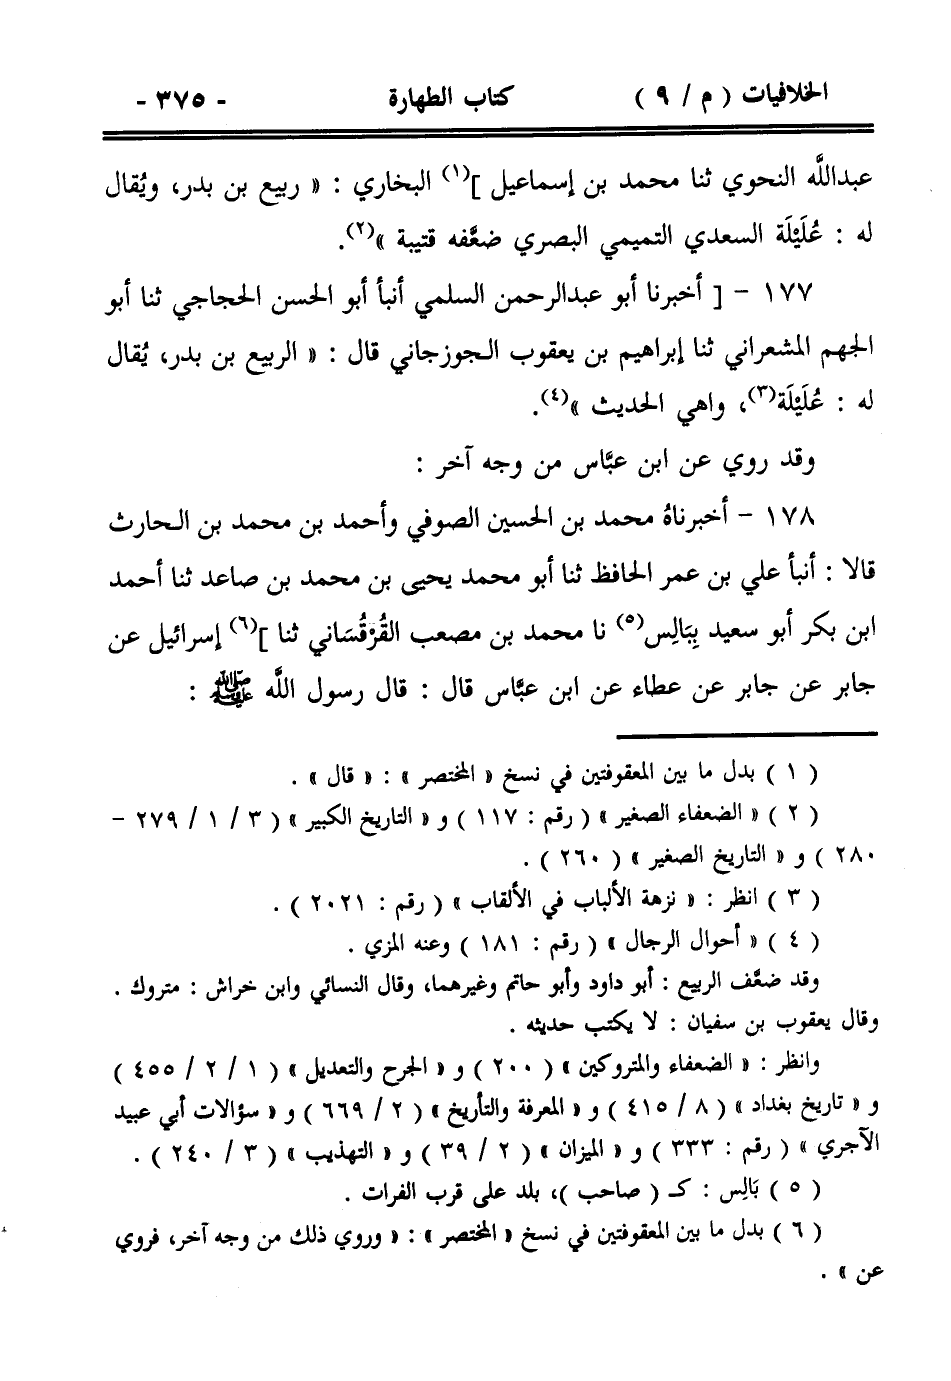 الخلافيات ( م / ٩ ) كتاب الطهارة - ٣٧٥ -
عبدالله النحوي ثنا محمد بن إسماعيل ](١) البخاري : « ربيع بن بدر، ويُقال
له : عُلَيْلَة السعدي التميمي البصري ضعَّفه قتيبة »(٢).
١٧٧ - [ أخبرنا أبو عبدالرحمن السلمي أنبأ أبو الحسن الحجاجي ثنا أبو
الجهم المشعراني ثنا إبراهيم بن يعقوب الجوزجاني قال : « الربيع بن بدر، يُقال
له : عُلَيْلَة(٣)، واهي الحديث »(٤).
وقد روي عن ابن عبَّاس من وجه آخر :
١٧٨ - أخبرناهُ محمد بن الحسين الصوفي وأحمد بن محمد بن الحارث
قالا : أنبأ علي بن عمر الحافظ ثنا أبو محمد يحيى بن محمد بن صاعد ثنا أحمد
ابن بكر أبو سعيد بِبَالِس(٥) نا محمد بن مصعب القُرْقُسَاني ثنا ](٦) إسرائيل عن
جابر عن جابر عن عطاء عن ابن عبَّاس قال : قال رسول الله ﷺ :
( ١ ) بدل ما بين المعقوفتين في نسخ « المختصر » : « قال » .
( ٢ ) « الضعفاء الصغير » ( رقم : ١١٧ ) و « التاريخ الكبير » ( ٣ / ١ / ٢٧٩ -
٢٨٠ ) و « التاريخ الصغير » ( ٢٦٠ ) .
( ٣ ) انظر : « نزهة الألباب في الألقاب » ( رقم : ٢٠٢١ ) .
( ٤ ) « أحوال الرجال » ( رقم : ١٨١ ) وعنه المزي .
وقد ضعَّف الربيع : أبو داود وأبو حاتم وغيرهما، وقال النسائي وابن خراش : متروك .
وقال يعقوب بن سفيان : لا يكتب حديثه .
وانظر : « الضعفاء والمتروكين » ( ٢٠٠ ) و « الجرح والتعديل » ( ١ / ٢ / ٤٥٥ )
و « تاريخ بغداد » ( ٨ / ٤١٥ ) و « المعرفة والتأريخ » ( ٢ / ٦٦٩ ) و « سؤالات أبي عبيد
الآجري » ( رقم : ٣٣٣ ) و « الميزان » ( ٢ / ٣٩ ) و « التهذيب » ( ٣ / ٢٤٠ ) .
( ٥ ) بَالِس : كـ ( صاحب )، بلد على قرب الفرات .
( ٦ ) بدل ما بين المعقوفتين في نسخ « المختصر » : « وروي ذلك من وجه آخر، فروي
عن » .